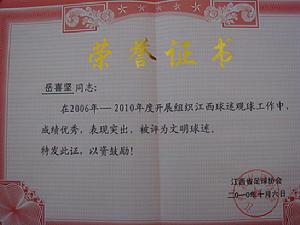 荣誉证书
岳喜坚同志：
在2006年—2010年度开展组织江西球迷观球工作中，
成绩优秀，表现突出，被评为文明球迷。
特发此证，以资鼓励！
江西省足球协会
二0一0年十月六日